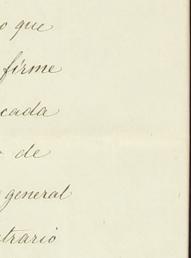 o que
firme
cada
de
general
trario